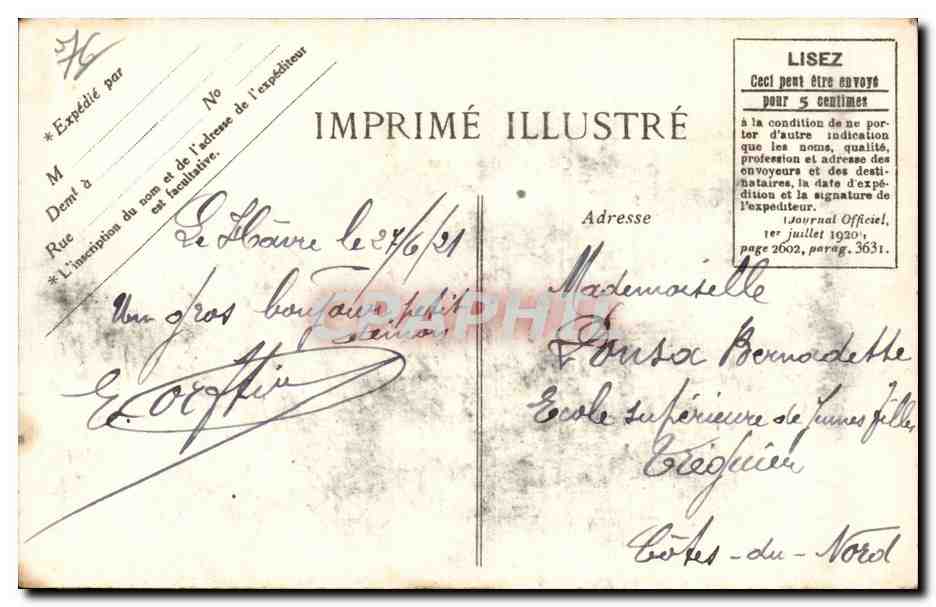 76
* Expédié par
M
Demt à
Rue No
* L'inscription du nom et de l'adresse de l'expéditeur
est facultative.
IMPRIMÉ ILLUSTRÉ
LISEZ
Ceci peut être envoyé
pour 5 centimes
à la condition de ne por-
ter d'autre indication
que les noms, qualité,
profession et adresse des
envoyeurs et des desti-
nataires, la date d'expé-
dition et la signature de
l'expéditeur.
(Journal Officiel,
1er juillet 1920,
page 2602, parag. 3631.
Le Hâvre le 27/6/21
Un gros bonjour petit
Adresse
Mademoiselle
Bernadette
Ecole supérieure de Jeunes filles
Tréguier
Côtes-du-Nord
CPAPHIL